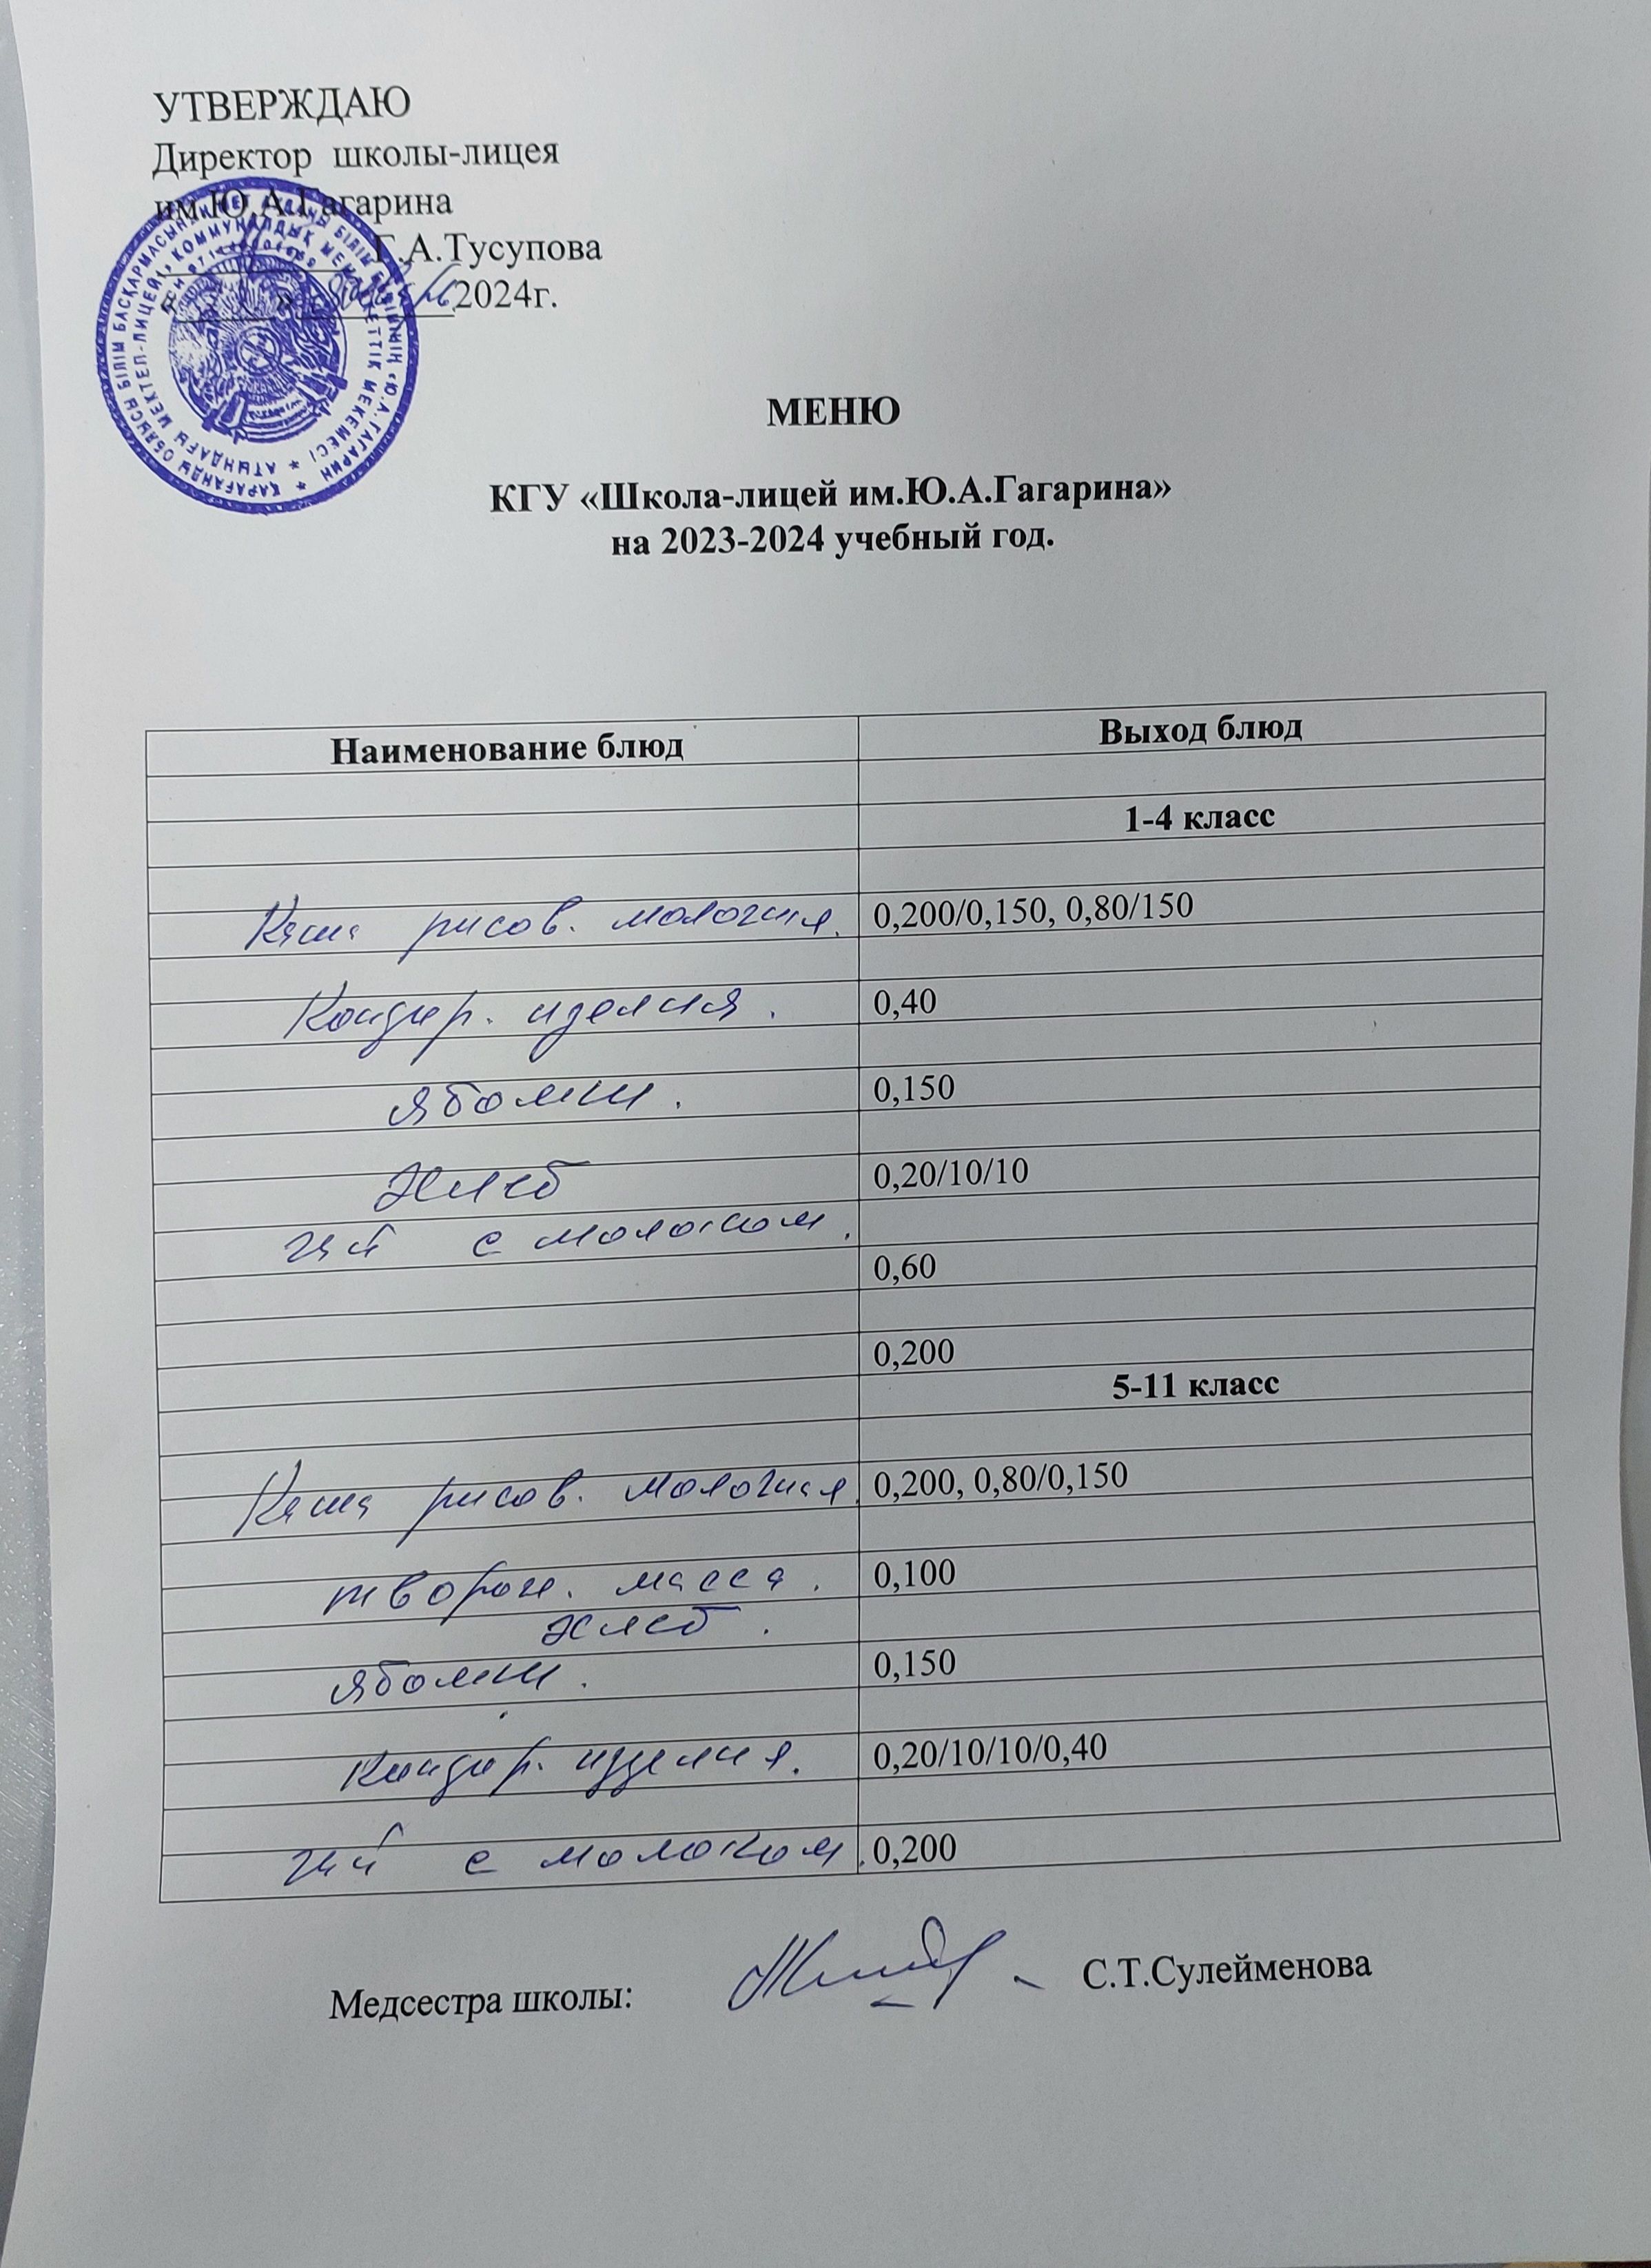 УТВЕРЖДАЮ
Директор школы-лицея
им.Ю.А.Гагарина
Г.А.Тусупова
« » 2024г.
ҚАРАҒАНДЫ ОБЛЫСЫ БІЛІМ БАСҚАРМАСЫНЫҢ БІЛІМ БӨЛІМІНІҢ «Ю.А.ГАГАРИН
АТЫНДАҒЫ МЕКТЕП-ЛИЦЕЙІ» КОММУНАЛДЫҚ МЕМЛЕКЕТТІК МЕКЕМЕСІ
МЕНЮ
КГУ «Школа-лицей им.Ю.А.Гагарина»
на 2023-2024 учебный год.
Наименование блюд Выход блюд
1-4 класс
Каша рисов. молочная. 0,200/0,150, 0,80/150
Кондир. изделия. 0,40
яблоки. 0,150
Хлеб 0,20/10/10
чай с молоком.
0,60
0,200
5-11 класс
Каша рисов. молочная. 0,200, 0,80/0,150
творож. масса. 0,100
хлеб.
яблоки. 0,150
Кондир. изделия. 0,20/10/10/0,40
чай с молоком. 0,200
Медсестра школы: С.Т.Сулейменова